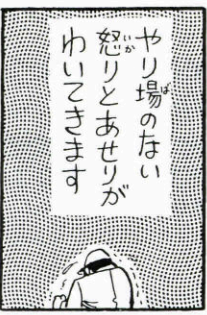 やり場のない
怒りとあせりが
わいてきます